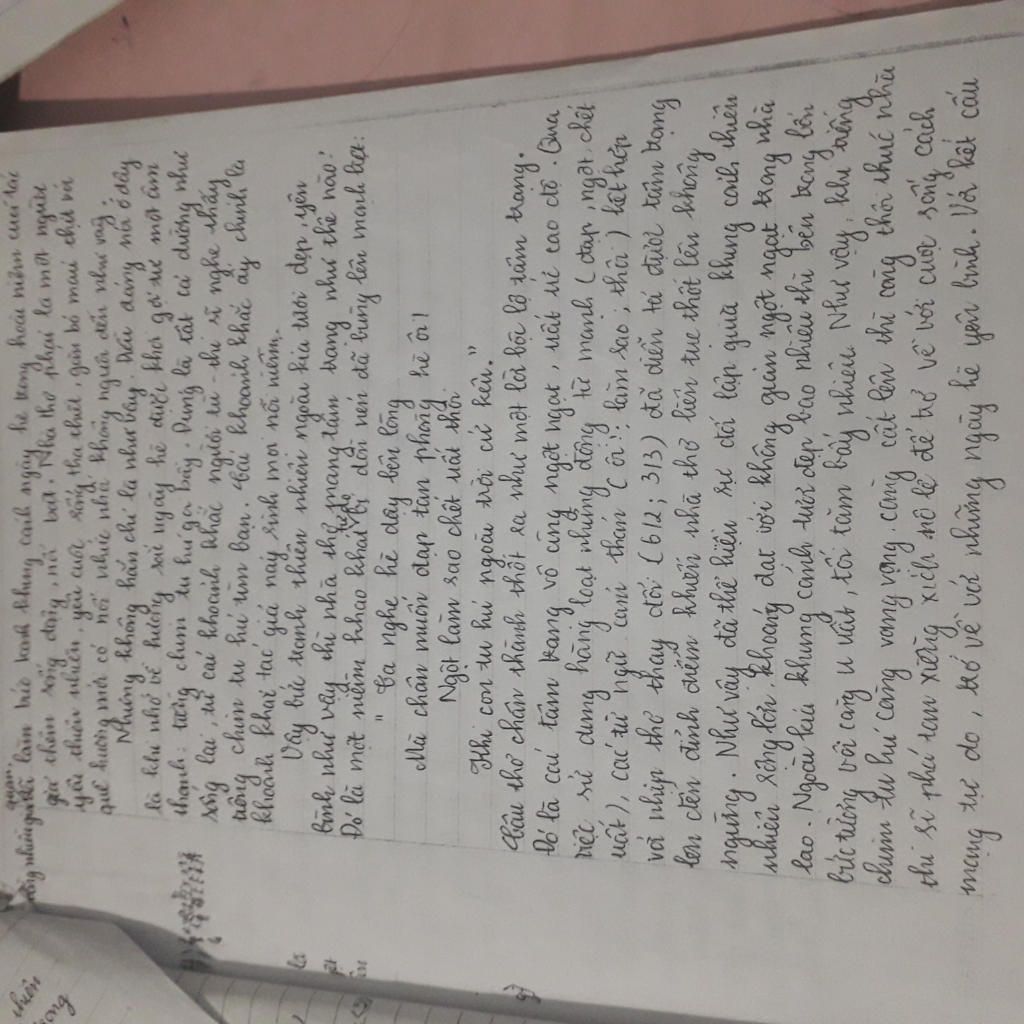 quan.
lắm bức tranh khung cảnh ngày hè trong hoài niệm của tác
giả thân sống động, nó bật. Nhà thơ phải là một người
yêu thiên nhiên, yêu cuộc sống tha thiết, gắn bó máu thịt với
quê hương mới có nỗi nhớ da diết đến như vậy.
Nhưng không hẳn chỉ là như vậy. Dấu đáng nói ở đây
là khi nhớ về hương sắc ngày hè được khơi gợi từ một âm
thanh: tiếng chim tu hú gọi bầy. Dừng lại tất cả dường như
sống lại, từ cái khoảnh khắc người tù - thi sĩ nghe thấy
tiếng chim tu hú tìm bạn. Cái khoảnh khắc ấy chính là
khoảnh khắc tác giả nảy sinh mọi nỗi niềm.
Vậy bức tranh thiên nhiên ngoài kia tươi đẹp, yên
bình như vậy thì nhà thơ mang tâm trạng như thế nào?
Đó là một niềm khao khát tự do dồi nén đã bùng lên mãnh liệt:
" Ta nghe hè dậy bên lòng
Mà chân muốn đạp tan phòng hè ôi!
Ngột làm sao chết uất thôi
Khi con tu hú ngoài trời cứ kêu."
Câu thơ chân thành thốt ra như một lời bộc lộ tâm trạng.
Đó là cái tâm trạng vô cùng ngột ngạt, uất ức cao độ. Qua
việc sử dụng hàng loạt những động từ mạnh (đạp, ngột, chết
uất), các từ ngữ cảm thán (ôi!; làm sao; thôi) kết hợp
với nhịp thơ thay đổi (6/2; 3/3) đã diễn tả được tâm trạng
lên đến đỉnh điểm khiến nhà thơ liên tục thốt lên không
ngừng. Như vậy đã thể hiện sự đối lập giữa khung cảnh thiên
nhiên rộng lớn, khoáng đạt với không gian ngột ngạt trong nhà
lao. Ngoài kia khung cảnh tươi đẹp bao nhiêu thì bên trong bốn
bức tường vôi càng u uất, tối tăm bấy nhiêu. Như vậy, khi tiếng
chim tu hú càng vang vọng càng cất lên thì càng thôi thúc nhà
thi sĩ phá tan xiềng xích nô lệ để trở về với cuộc sống cách
mạng tự do, trở về với những ngày hè yên bình. Với kết cấu
thiên
trong
là